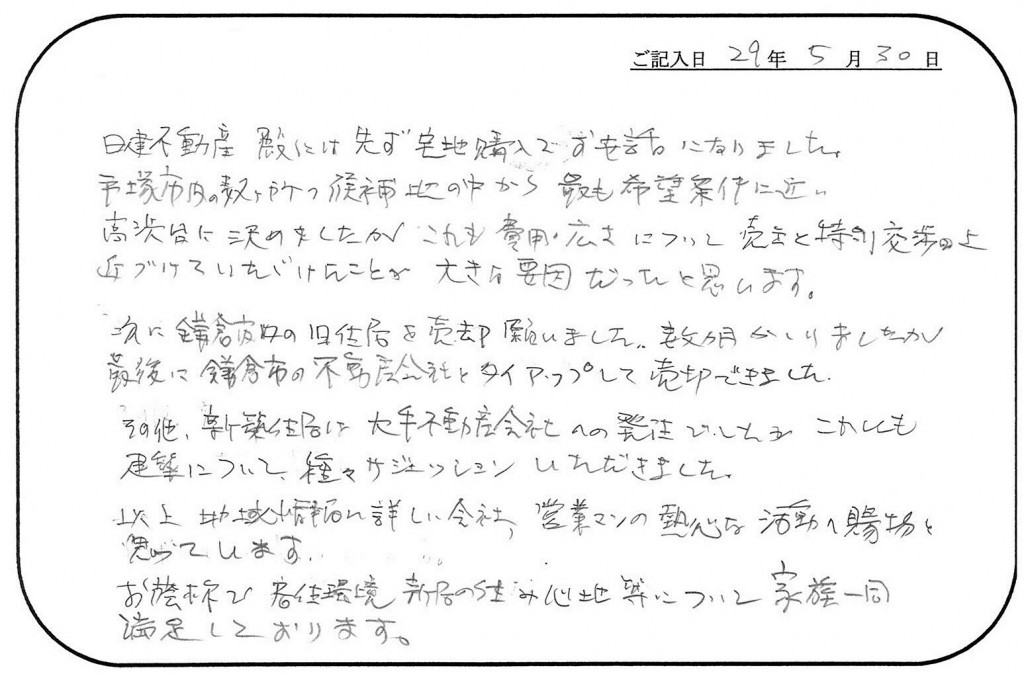 ご記入日 29年 5月 30日
日建不動産殿には先ず宅地購入でお世話になりました。
平塚市内の数ヶ所の候補地の中から 最も希望条件に近い
高浜台に決めましたが これも費用・広さについて 売主と特別交渉の上
近づけていただけたことが 大きな要因だったと思います。
次に鎌倉市内の旧住居を売却願いました。数ヶ月かかりましたが
最後に鎌倉市の不動産会社とタイアップして売却できました。
その他、新築住居は大手不動産会社への発注でしたが これにも
建築について、種々サジェッションいただきました。
以上 地域情報に詳しい会社、営業マンの熱心な活動の賜物と
思っています。
お陰様で 居住環境 新居の住み心地等について 家族一同
満足しております。